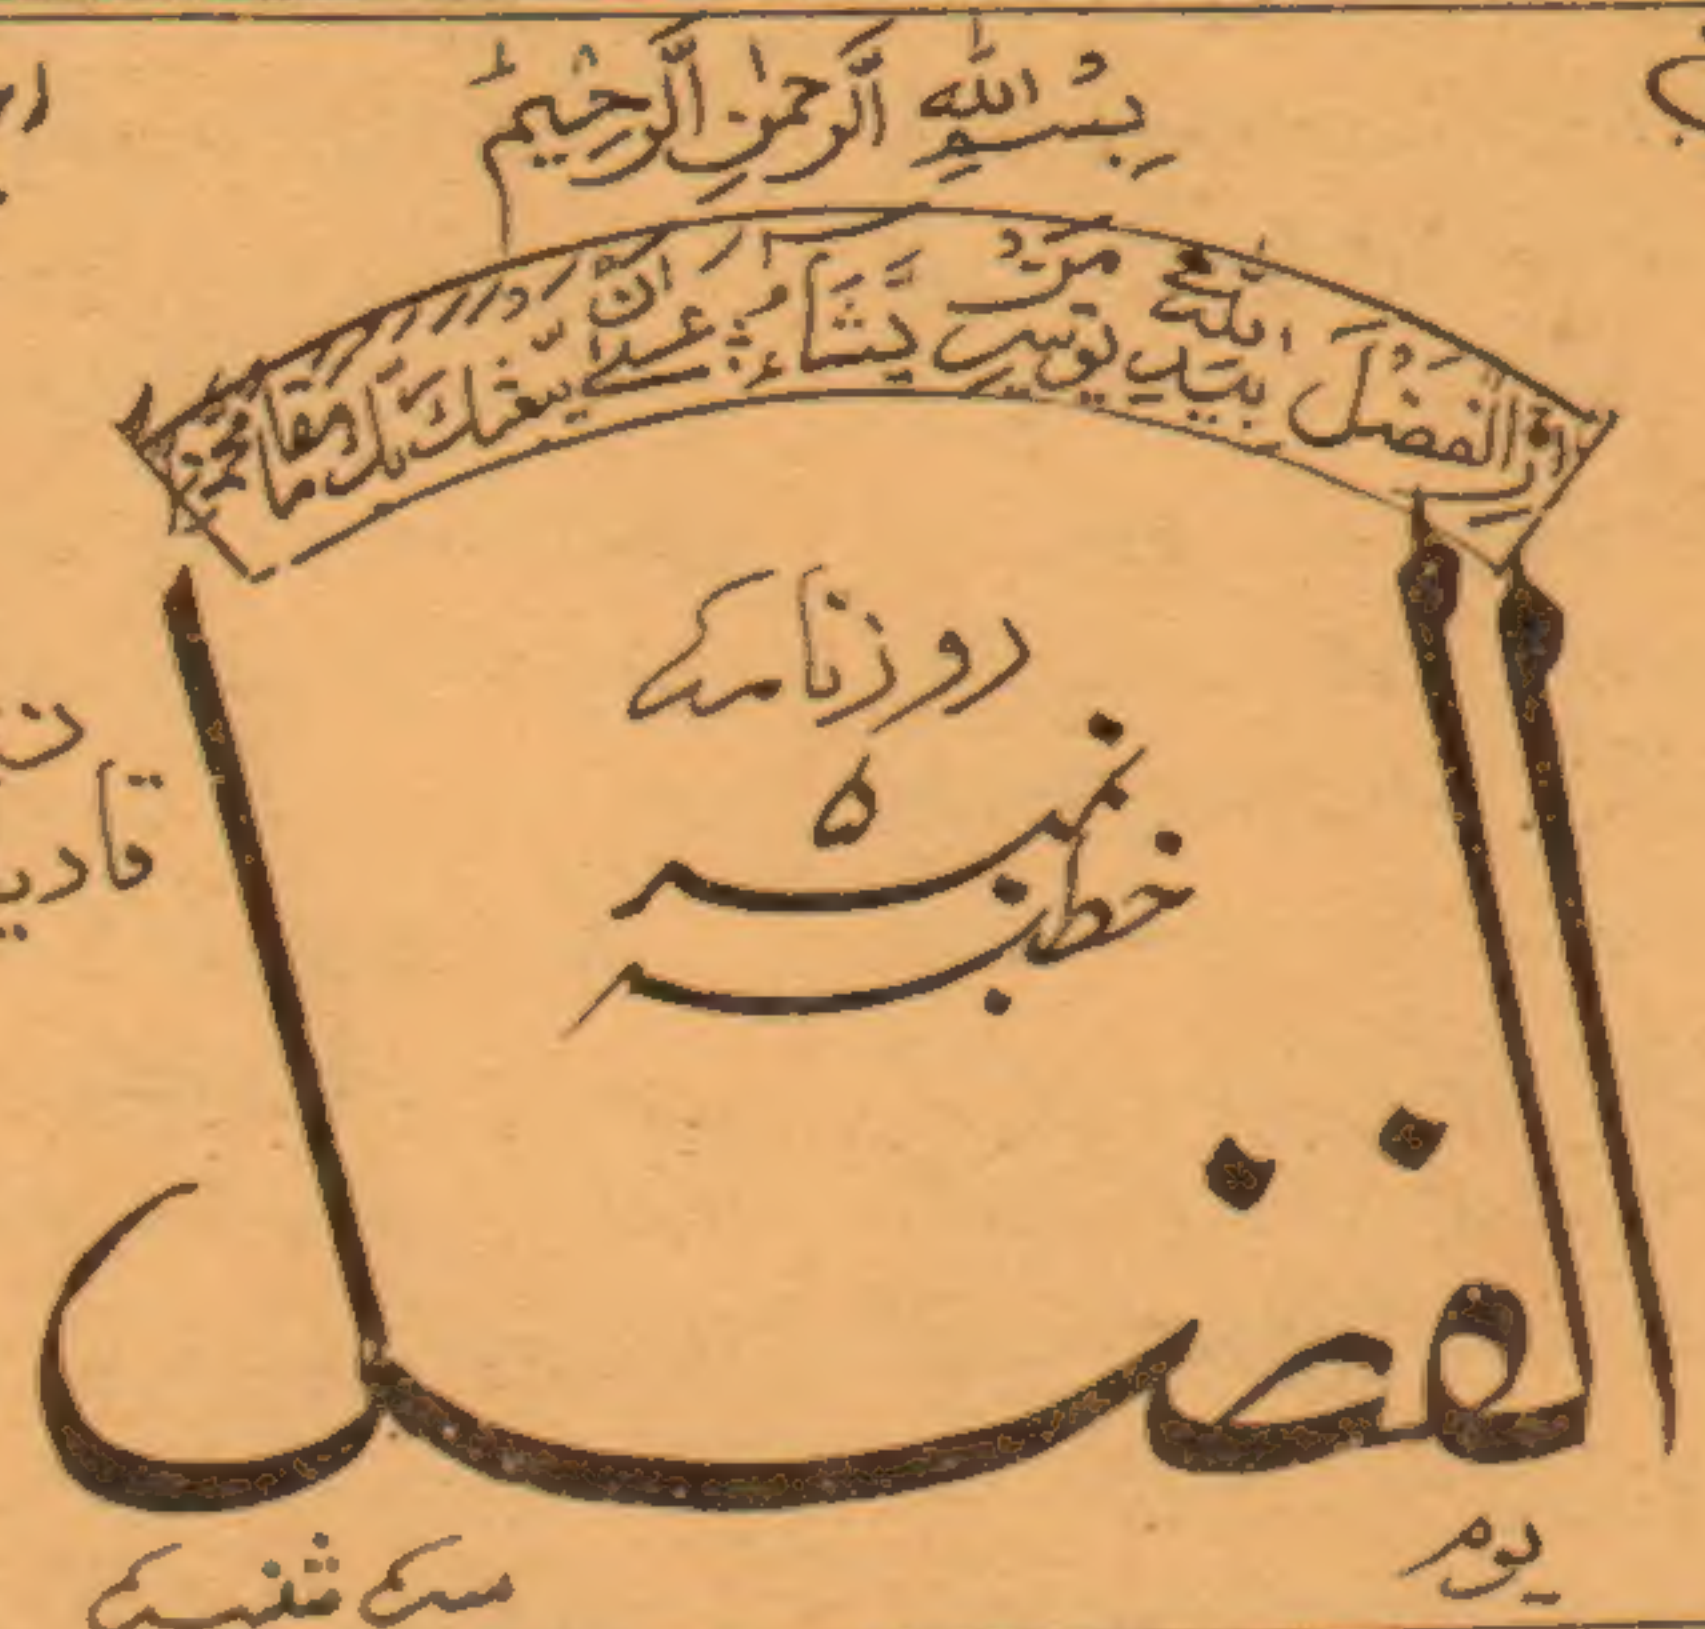 بِسْمِ اللّٰهِ الرَّحْمٰنِ الرَّحِيْمِ
اِنَّ الْفَضْلَ بِيَدِ اللّٰهِ يُؤْتِيْهِ مَنْ يَّشَآءُ عَسٰى اَنْ يَّبْعَثَكَ رَبُّكَ مَقَامًا مَّحْمُوْدًا
روزنامہ
نمبر ۵
خطبہ
الفضل
یوم سہ شنبہ